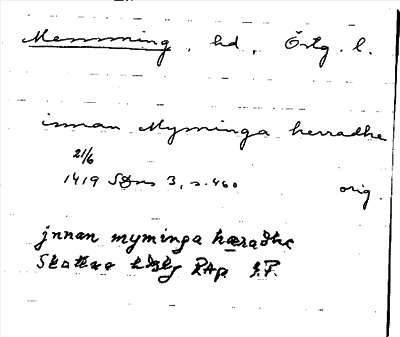 Memming, hd, Östg. l.
innan Myminga herradhe
21/6
1419 SDns 3, s. 460 orig.
jnnan myminga hæradhe
RAp.